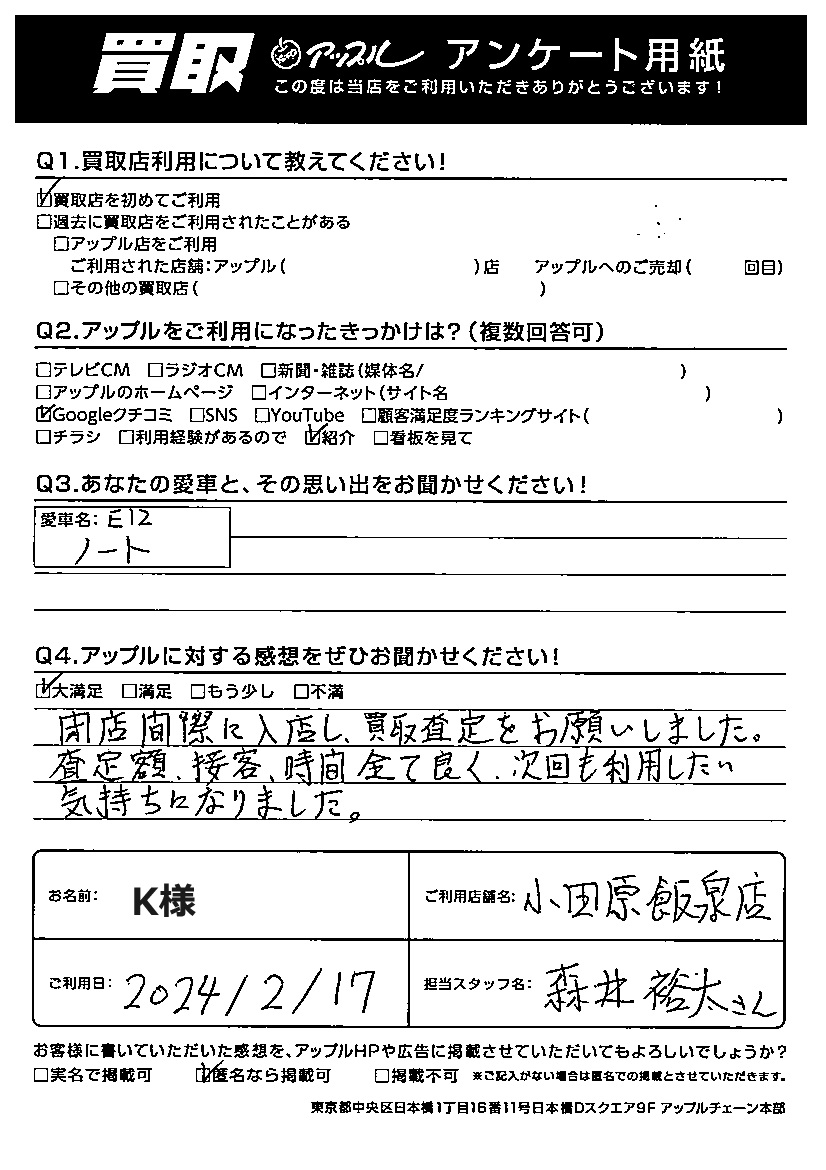 買取 アップル アンケート用紙
この度は当店をご利用いただきありがとうございます!
Q1.買取店利用について教えてください!
☑買取店を初めてご利用
□過去に買取店をご利用されたことがある
□アップル店をご利用
ご利用された店舗:アップル( )店 アップルへのご売却( 回目)
□その他の買取店( )
Q2.アップルをご利用になったきっかけは?(複数回答可)
□テレビCM □ラジオCM □新聞・雑誌(媒体名/ )
□アップルのホームページ □インターネット(サイト名 )
☑Googleクチコミ □SNS □YouTube □顧客満足度ランキングサイト( )
□チラシ □利用経験があるので ☑紹介 □看板を見て
Q3.あなたの愛車と、その思い出をお聞かせください!
愛車名: E12
ノート
Q4.アップルに対する感想をぜひお聞かせください!
☑大満足 □満足 □もう少し □不満
閉店間際に入店し、買取査定をお願いしました。
査定額、接客、時間全て良く、次回も利用したい
気持ちになりました。
お名前: K様 ご利用店舗名: 小田原飯泉店
ご利用日: 2024/2/17 担当スタッフ名: 森井裕太さん
お客様に書いていただいた感想を、アップルHPや広告に掲載させていただいてもよろしいでしょうか?
□実名で掲載可 ☑匿名なら掲載可 □掲載不可 ※ご記入がない場合は匿名での掲載とさせていただきます。
東京都中央区日本橋1丁目16番11号日本橋Dスクエア9F アップルチェーン本部